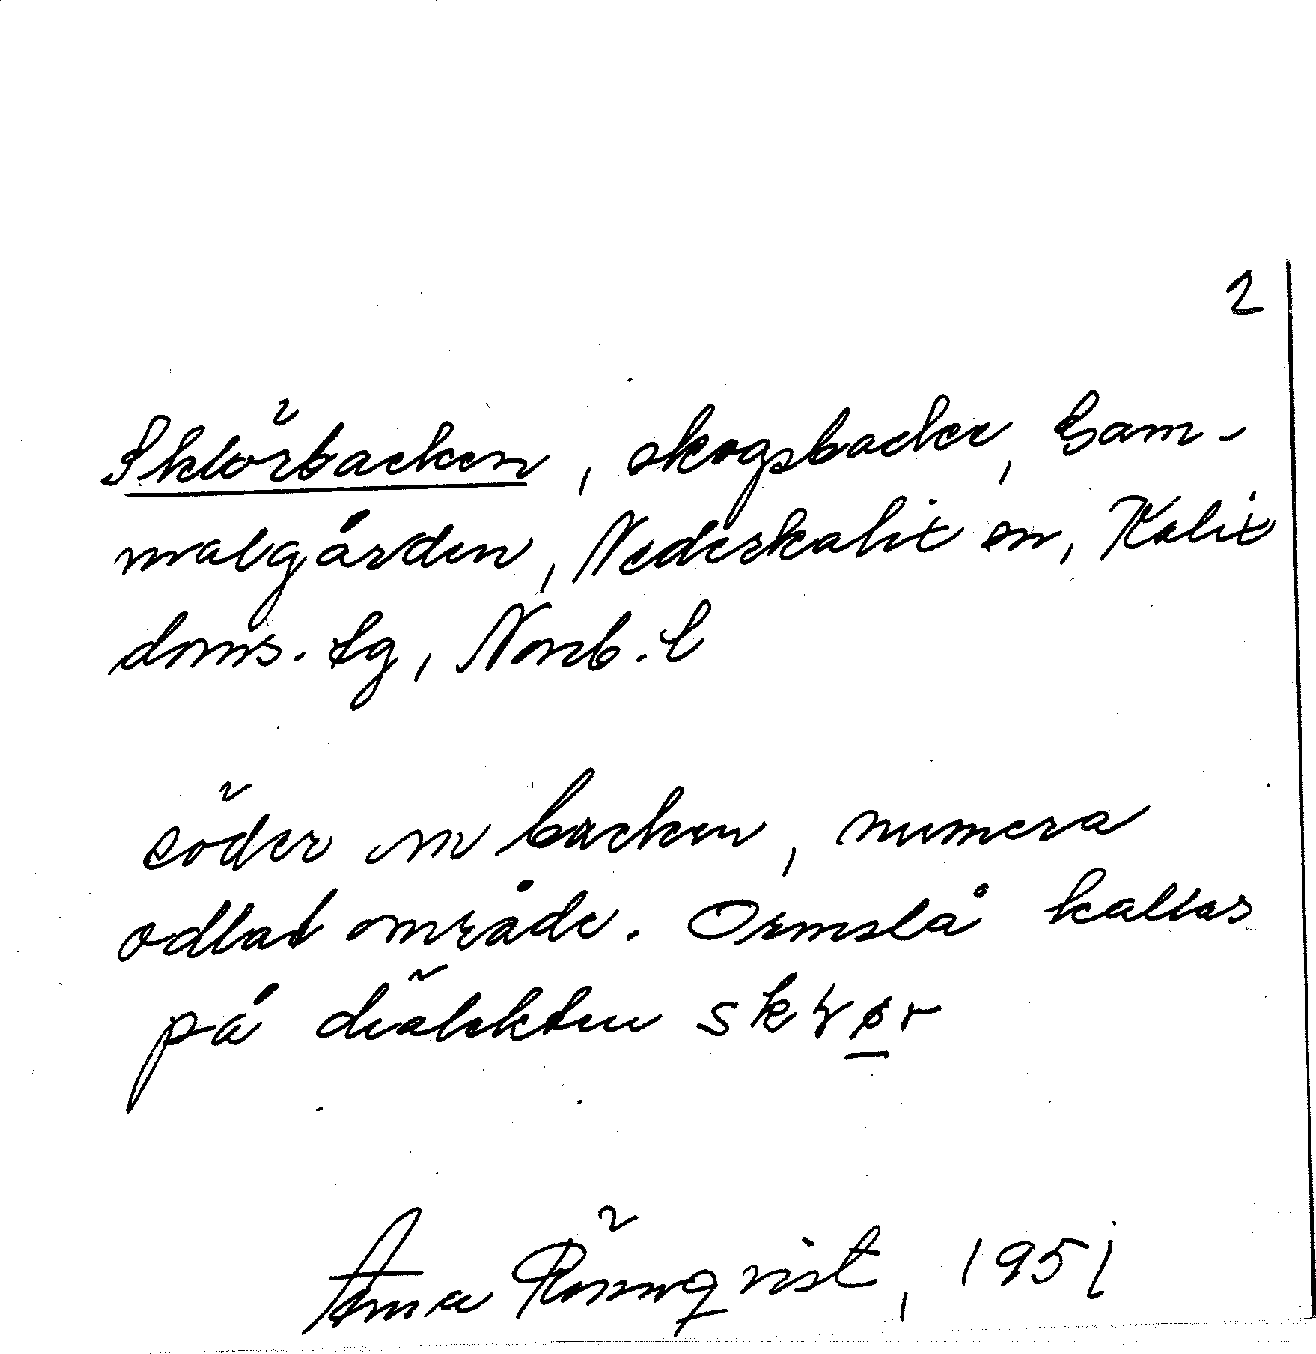 2
Sklörbacken, skogsbacke, Gam-
malgården, Nederkalix sn, Kalix
doms. lg, Norrb. l
söder om backen, numera
odlat område. Ormslå kallas
på dialekten
Anna Rönnqvist, 1951